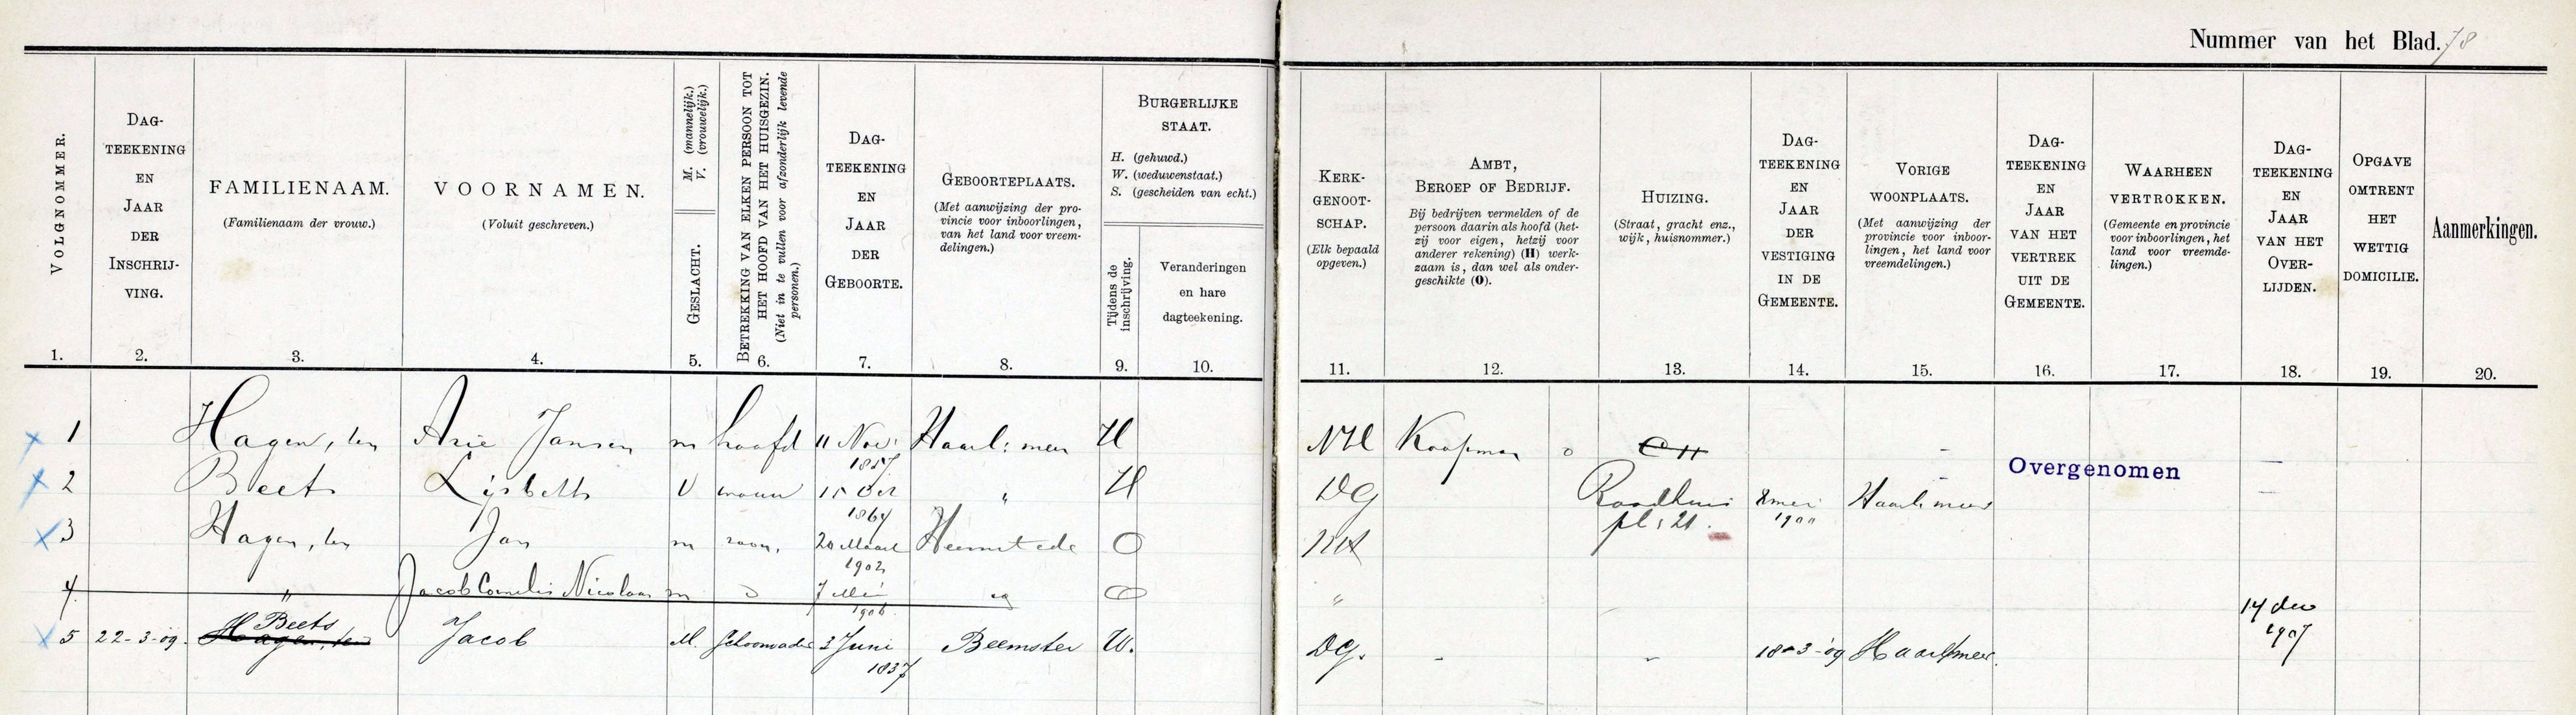 Nummer van het Blad. 78
VOLGNOMMER.
1.
DAG-
TEEKENING
EN
JAAR
DER
INSCHRIJ-
VING.
2.
FAMILIENAAM.
(Familienaam der vrouw.)
3.
VOORNAMEN.
(Voluit geschreven.)
4.
M. (mannelijk.)
V. (vrouwelijk.)
GESLACHT.
5.
BETREKKING VAN ELKEN PERSOON TOT
HET HOOFD VAN HET HUISGEZIN.
(Niet in te vullen voor afzonderlijk levende
personen.)
6.
DAG-
TEEKENING
EN
JAAR
DER
GEBOORTE.
7.
GEBOORTEPLAATS.
(Met aanwijzing der pro-
vincie voor inboorlingen,
van het land voor vreem-
delingen.)
8.
BURGERLIJKE
STAAT.
H. (gehuwd.)
W. (weduwenstaat.)
S. (gescheiden van echt.)
Tijdens de
inschrijving.
9.
Veranderingen
en hare
dagteekening.
10.
KERK-
GENOOT-
SCHAP.
(Elk bepaald
opgeven.)
11.
AMBT,
BEROEP OF BEDRIJF.
Bij bedrijven vermelden of de
persoon daarin als hoofd (het-
zij voor eigen, hetzij voor
anderer rekening) (H) werk-
zaam is, dan wel als onder-
geschikte (O).
12.
HUIZING.
(Straat, gracht enz.,
wijk, huisnommer.)
13.
DAG-
TEEKENING
EN
JAAR
DER
VESTIGING
IN DE
GEMEENTE.
14.
VORIGE
WOONPLAATS.
(Met aanwijzing der
provincie voor inboor-
lingen, het land voor
vreemdelingen.)
15.
DAG-
TEEKENING
EN
JAAR
VAN HET
VERTREK
UIT DE
GEMEENTE.
16.
WAARHEEN
VERTROKKEN.
(Gemeente en provincie
voor inboorlingen, het
land voor vreemde-
lingen.)
17.
DAG-
TEEKENING
EN
JAAR
VAN HET
OVER-
LIJDEN.
18.
OPGAVE
OMTRENT
HET
WETTIG
DOMICILIE.
19.
Aanmerkingen.
20.
x 1 Hagen, ten Arie Jansen m hoofd 11 Nov: 1857 Haarl: meer H NH Koopman o
x 2 Beets Lijsbeth V vrouw 15 Oct 1864 " H DG Raadhuis pl: 21. 8 mei Haarlemmeer
Overgenomen
x 3 Hagen, ten Jan m zoon, 20 Maart 1902 Heemstede O NH
4. " Jacob Cornelis Nicolaas m " 7 Mei 1906 O " 14 dec 1907
x 5 22-3-09. Hagen, ten Beets Jacob M. Schoonvader 3 Juni 1837 Beemster W. DG. - - 18-3-09 Haarl'meer.